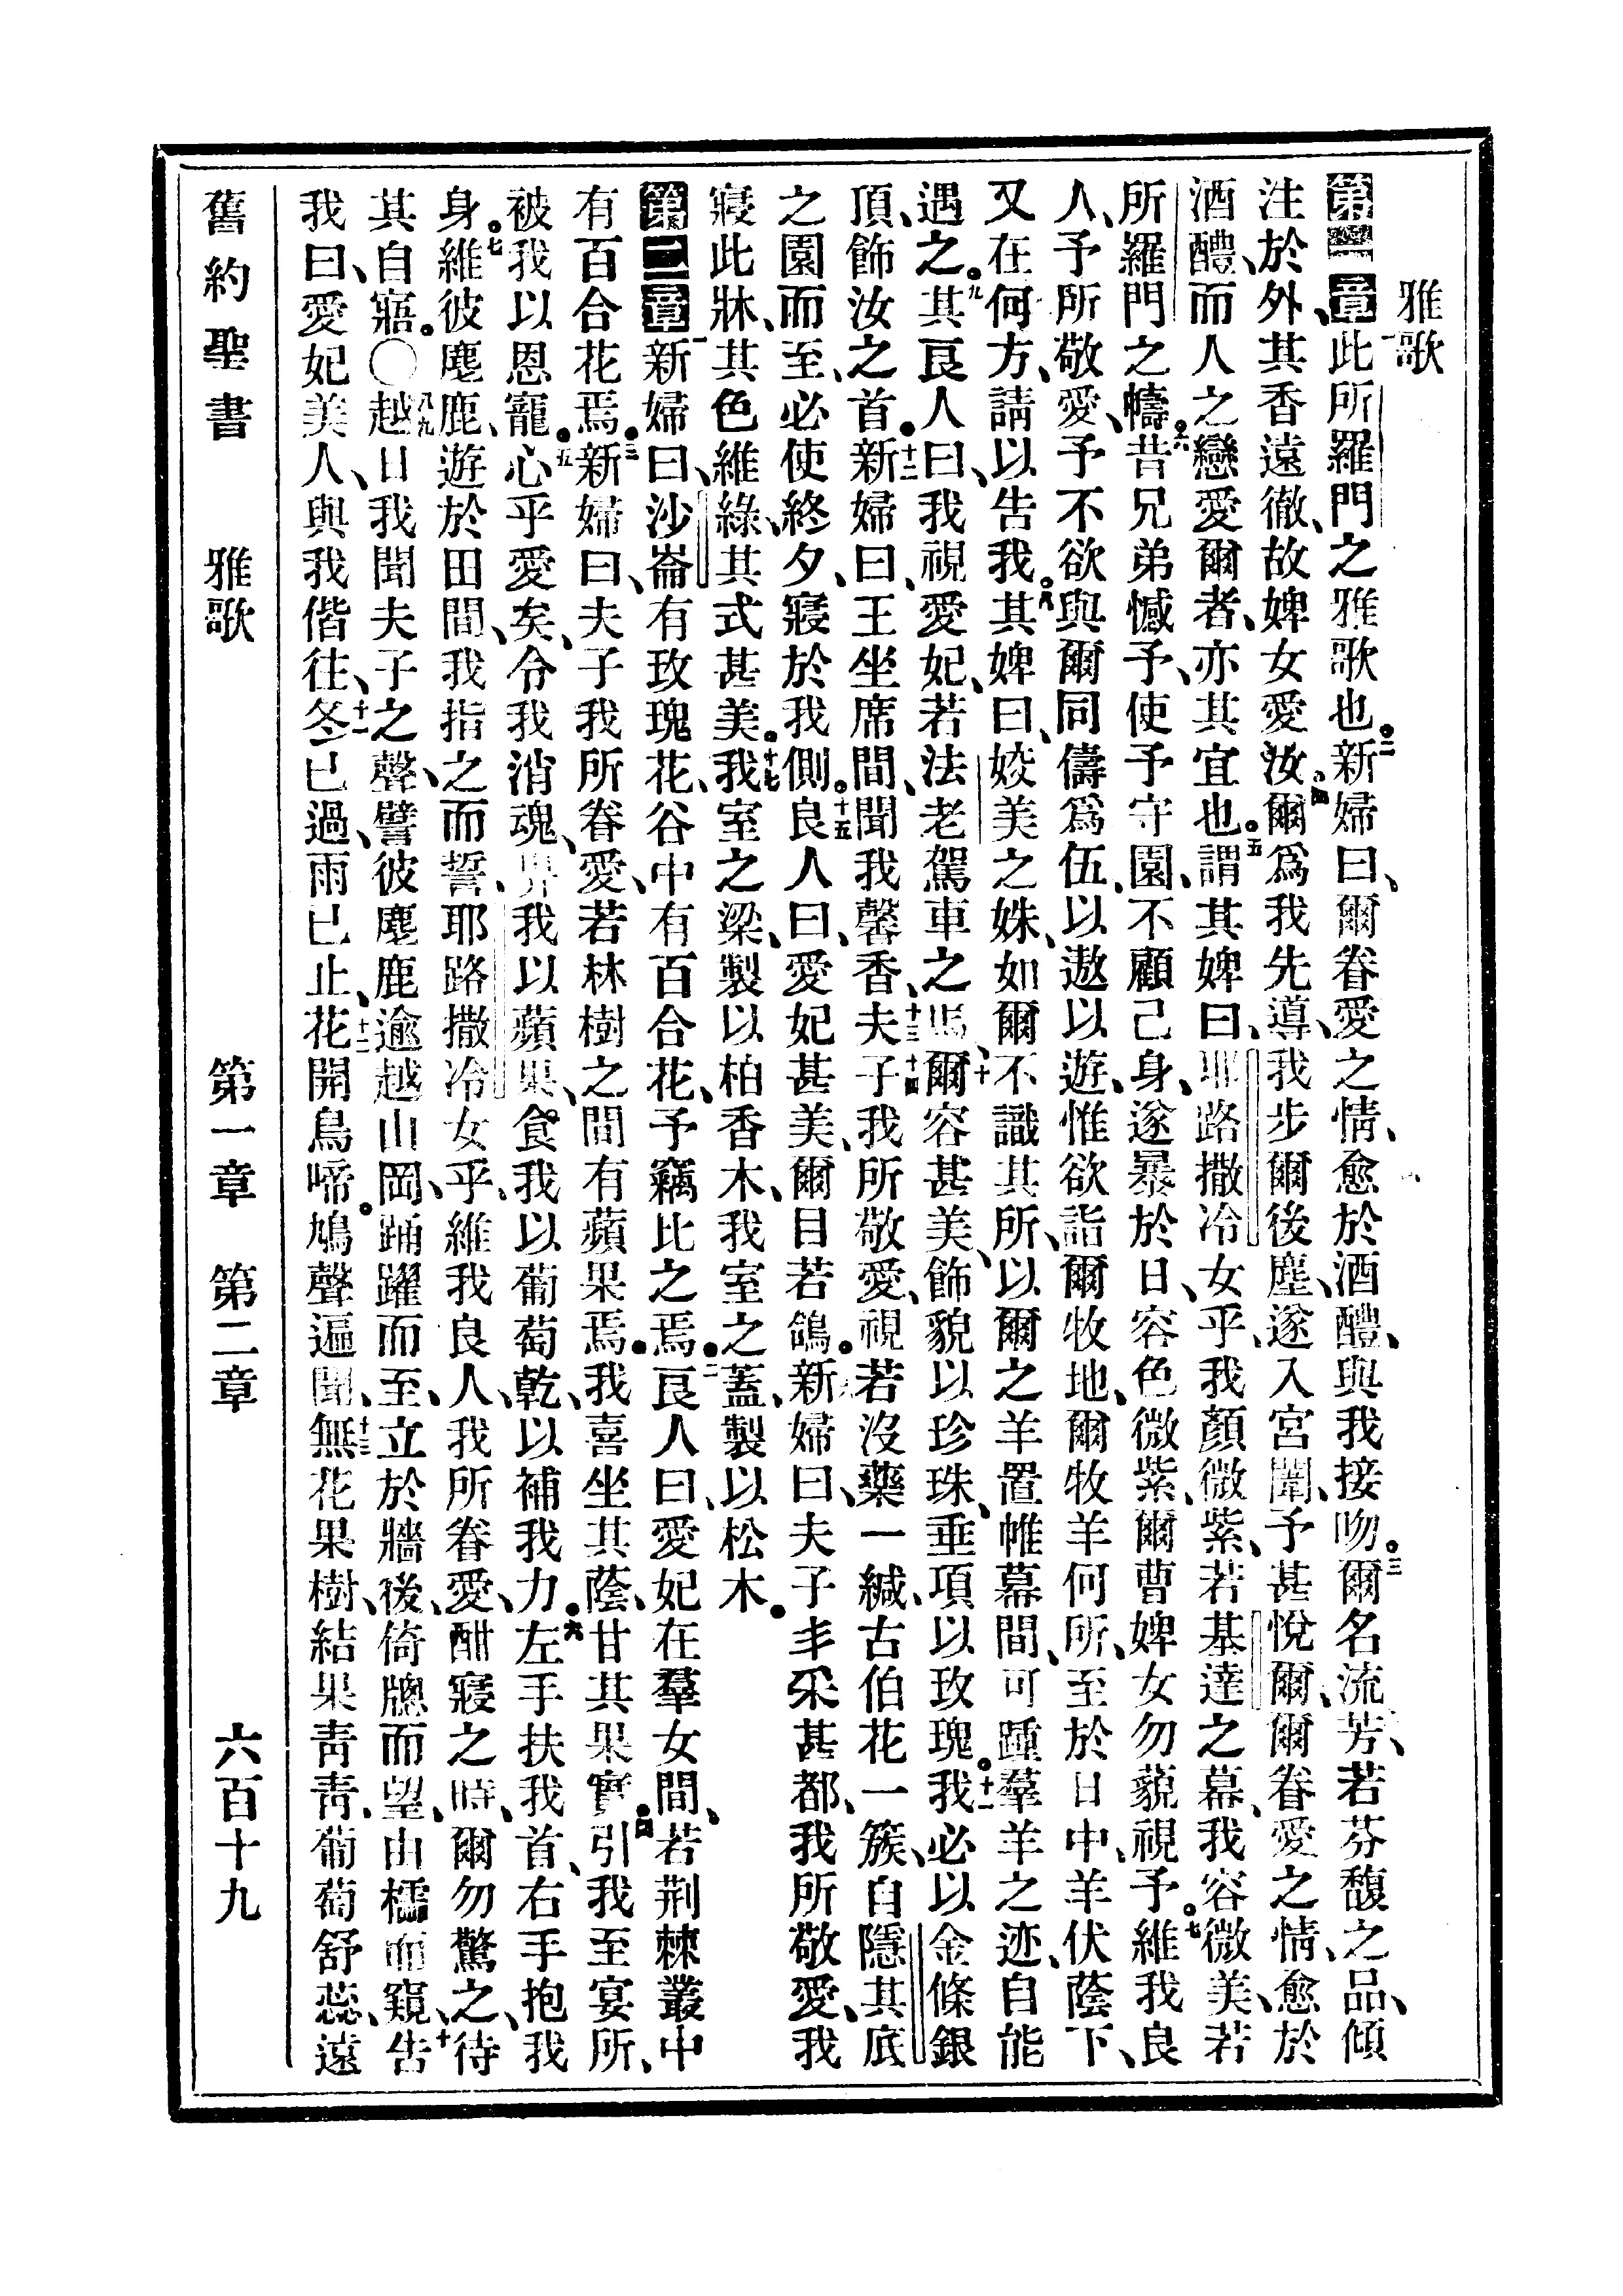 雅歌
第一章一此所羅門之雅歌也。二新婦曰、爾眷愛之情、愈於酒醴、與我接吻。三爾名流芳、若芬馥之品、傾
注於外、其香遠徹、故婢女愛汝。四爾爲我先導、我步爾後塵、遂入宮闈、予甚悅爾、爾眷愛之情、愈於
酒醴、而人之戀愛爾者、亦其宜也。五謂其婢曰、耶路撒冷女乎、我顏微紫、若基達之幕、我容微美、若
所羅門之幬。六昔兄弟憾予、使予守園、不顧己身、遂暴於日、容色微紫、爾曹婢女勿藐視予。七維我良
人、予所敬愛、予不欲與爾同儔爲伍、以遨以遊、惟欲詣爾牧地、爾牧羊何所、至於日中、羊伏蔭下、
又在何方、請以告我。八其婢曰、姣美之姝、如爾不識其所、以爾之羊置帷幕間、可踵羣羊之迹、自能
遇之。九其良人曰、我視愛妃、若法老駕車之馬、十爾容甚美、飾貌以珍珠、垂項以玫瑰。十一我必以金條銀
頂、飾汝之首。十二新婦曰、王坐席間、聞我馨香、十三夫子十四我所敬愛、視若沒藥一緘、古伯花一簇、自隱其底
之園而至、必使終夕、寢於我側。十五良人曰、愛妃甚美、爾目若鴿。新婦曰、夫子丰采甚都、我所敬愛、我
寢此牀、其色維綠、其式甚美。十七我室之梁、製以柏香木、我室之蓋、製以松木。
第二章一新婦曰、沙崙有玫瑰花、谷中有百合花、予竊比之焉。二良人曰、愛妃在羣女間、若荆棘叢中
有百合花焉。三新婦曰、夫子我所眷愛、若林樹之間有蘋果焉。我喜坐其蔭、甘其果實。四引我至宴所、
被我以恩寵。五心乎愛矣、令我消魂、畀我以蘋果、食我以葡萄乾、以補我力。六左手扶我首、右手抱我
身。七維彼麀鹿、遊於田間、我指之而誓、耶路撒冷女乎、維我良人、我所眷愛、酣寢之時、爾勿驚之、待
其自寤。〇八九越日我聞夫子之聲、譬彼麀鹿逾越山岡、踊躍而至、立於牆後、倚牕而望、由櫺而窺、十告
我曰、愛妃美人、與我偕往、十一冬已過、雨已止、十二花開鳥啼。鳩聲遍聞、十三無花果樹、結果青青、葡萄舒蕊、遠
舊約聖書　雅歌　第一章　第二章　六百十九